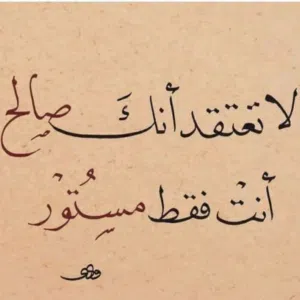 لا تعتقد أنكَ صالح
أنتْ فقط مستُورْ